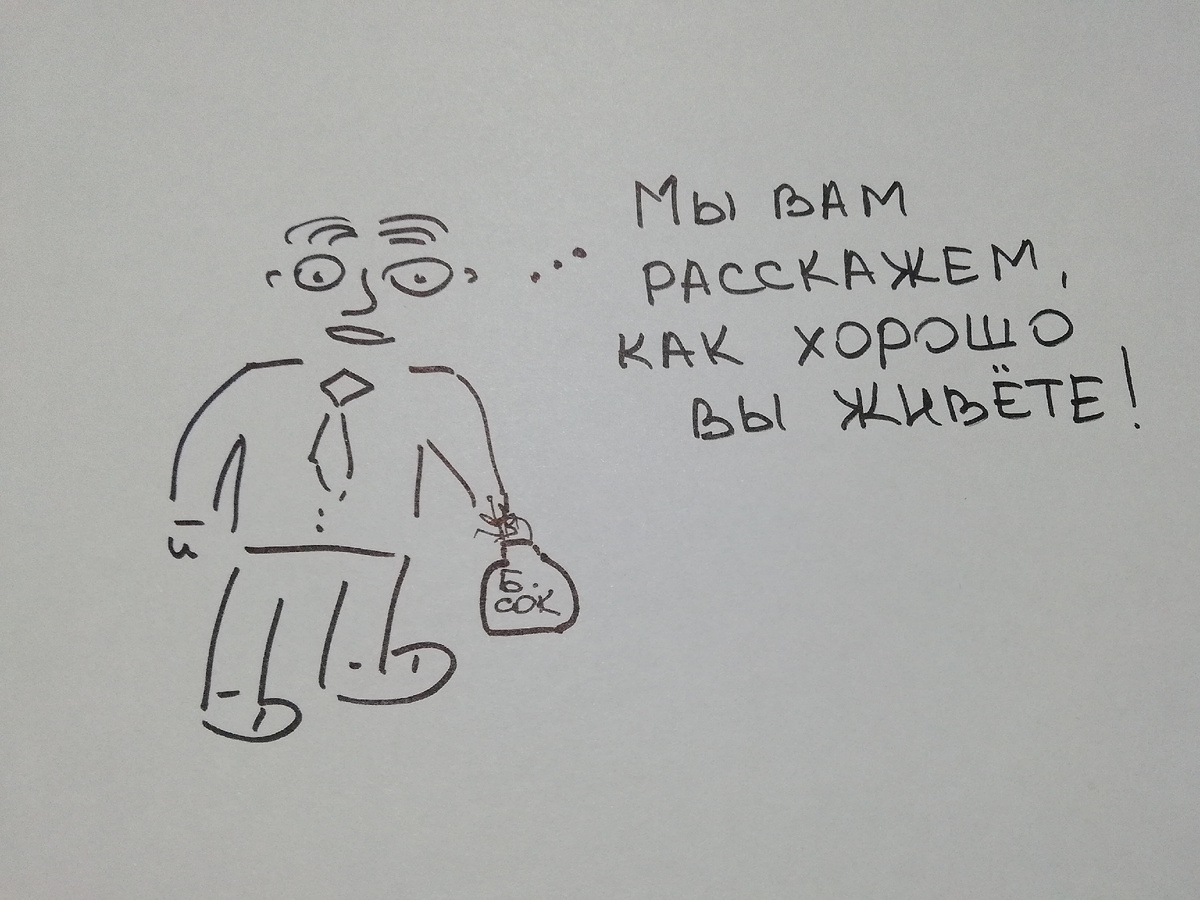 Мы вам
расскажем,
как хорошо
вы живёте!
Б.
сок